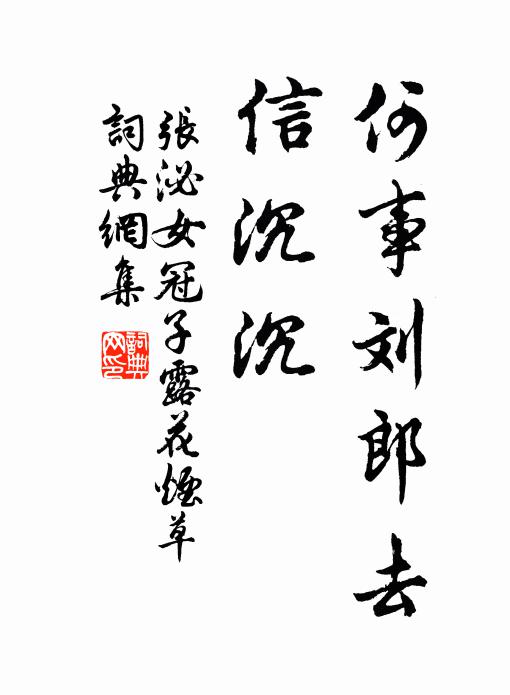 何事刘郎去
信沉沉
張泌女冠子露花煙草
詞典網集
詞典網印